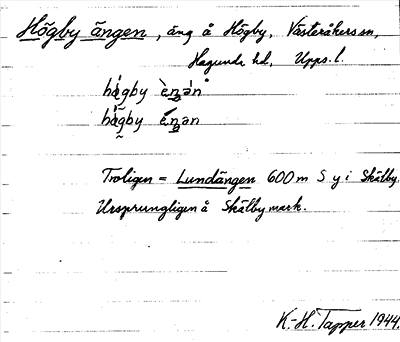 Högby ängen, äng å Högby, Västeråkers sn,
Hagunda hd, Upps. l.
högby
högby
Troligen = Lundängen 600 m S y i Skälby.
Ursprungligen å Skälby mark.
K.-H. Tapper 1944.